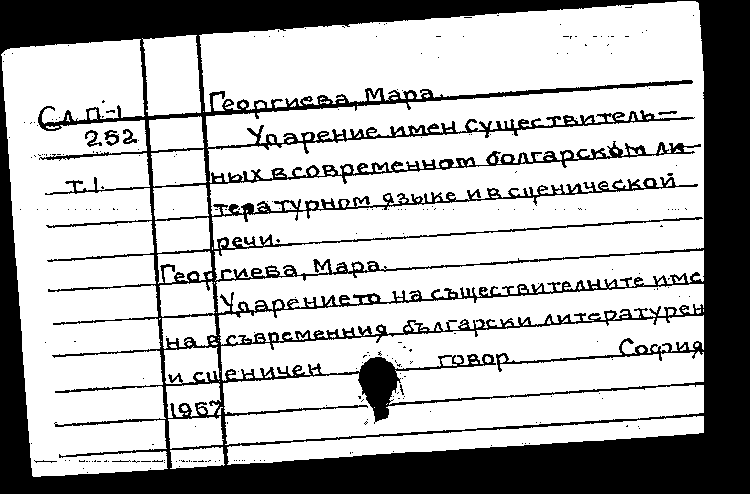 Георгиева, Мара.
Сл. П-1
252
Ударение имен существитель-
ных в современном болгарском ли-
т. 1.
тературном языке и в сценической
речи.
Георгиева, Мара.
Ударението на съществителните име-
на в съвременния български литературен
и сценичен говор. София
1967.